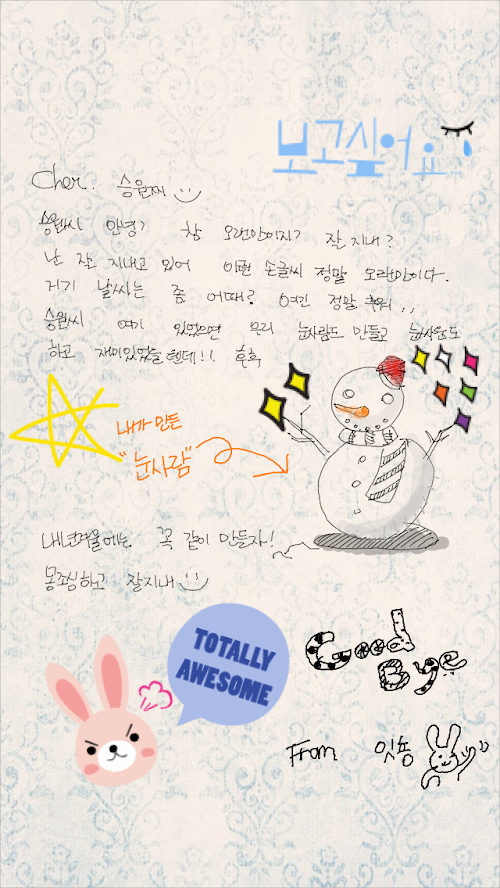 보고싶어요
Cher. 승원씨
승원씨 안녕? 참 오랜만이지? 잘 지내?
난 잘 지내고 있어 이런 손글씨 정말 오랜만이다.
거기 날씨는 좀 어때? 여긴 정말 추워,,
승원씨 여기 있었으면 우리 눈사람도 만들고 눈싸움도
하고 재미있었을 텐데!! 흑흑
내가 만든
"눈사람"
내년겨울에는 꼭 같이 만들자!
몸조심하고 잘지내
TOTALLY
AWESOME
Good
Bye
From